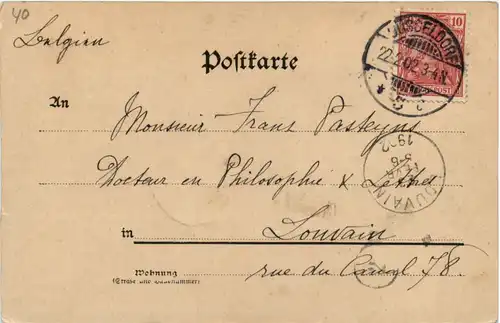 40
Belgien
Postkarte
10
DÜSSELDORF
22.2.02.3-4N.
An
Monsieur Frans Pasteyns
1902
LOUVAIN
Docteur en Philosophie & Lettres
in Louvain
Wohnung
(Straße und Hausnummer)
rue du Canal 78.